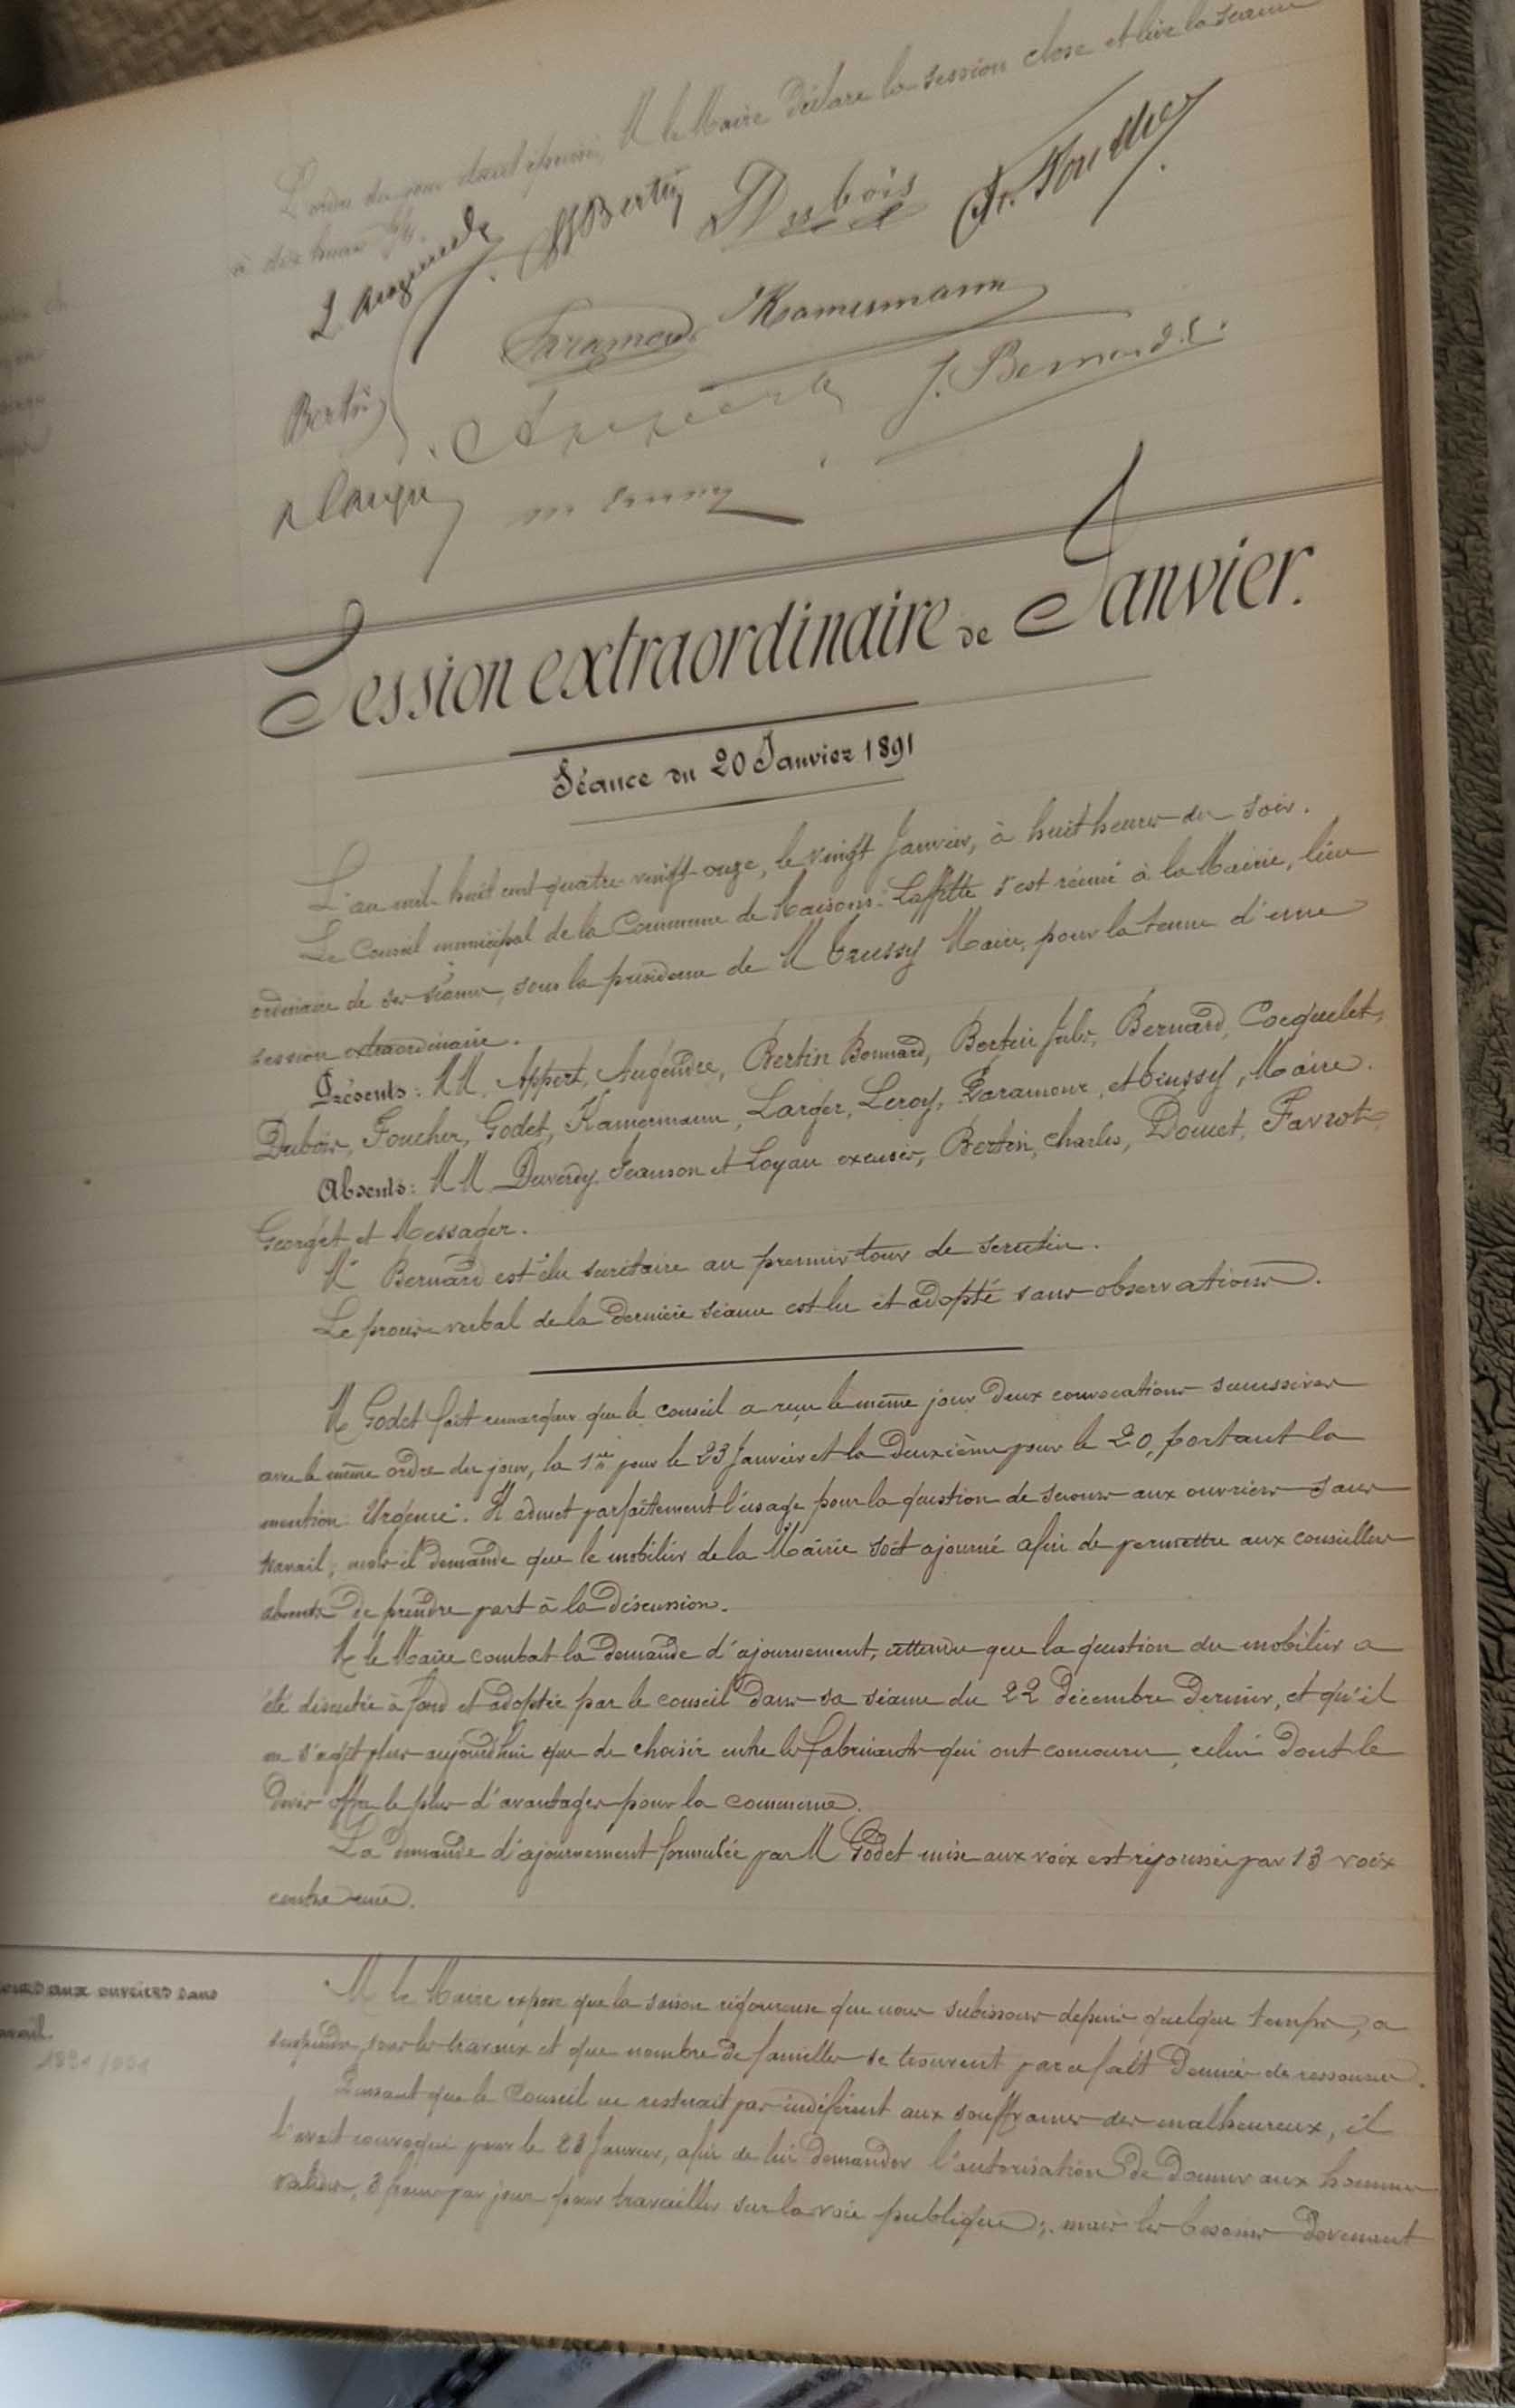 L'ordre du jour étant épuisé, M le Maire déclare la session close et lève la séance
à dix heures 3/4.
L Augendre
Bertin
Dubois
Foucher
Paramour
Kamermann
Bertin
Appert
J. Bernard
Larger
Session extraordinaire de Janvier.
Séance du 20 Janvier 1891
L'an mil huit cent quatre vingt onze, le vingt Janvier, à huit heures du soir.
Le Conseil municipal de la Commune de Maisons-Laffitte s'est réuni à la Mairie, lieu
ordinaire de ses séances, sous la présidence de M Trussy Maire, pour la tenue d'une
session extraordinaire.
Présents : MM. Appert, Augendre, Bertin Bonnard, Bertin Jules, Bernard, Cocquelet,
Dubois, Foucher, Godet, Kamermann, Larger, Leroy, Paramour, et Trussy, Maire.
Absents : MM Duverdy, Jeanson et Loyau excusés, Bertin, Charles, Doucet, Favrot,
Georget et Messager.
M. Bernard est élu secrétaire au premier tour de scrutin.
Le procès-verbal de la dernière séance est lu et adopté sans observations.
M Godet fait remarquer que le conseil a reçu le même jour deux convocations successives
avec le même ordre du jour, la 1ère pour le 23 Janvier et la deuxième pour le 20, portant la
mention Urgence. Il admet parfaitement l'usage pour la question de secours aux ouvriers sans
travail, mais il demande que le mobilier de la Mairie soit ajourné afin de permettre aux conseillers
absents de prendre part à la discussion.
M le Maire combat la demande d'ajournement, attendu que la question du mobilier a
été discutée à fond et adoptée par le conseil dans sa séance du 22 décembre dernier, et qu'il
ne s'agit plus aujourd'hui que de choisir entre les fabricants qui ont concouru, celui dont le
devis offre le plus d'avantages pour la commune.
La demande d'ajournement formulée par M Godet mise aux voix est repoussée par 13 voix
contre une.
aux ouvriers sans
M le Maire expose que la saison rigoureuse que nous subissons depuis quelque temps, a
suspendu tous les travaux et que nombre de familles se trouvent par ce fait dénuées de ressources.
Pensant que le Conseil ne resterait pas indifférent aux souffrances des malheureux, il
l'avait convoqué pour le 23 Janvier, afin de lui demander l'autorisation de donner aux hommes
valides, 3 francs par jour pour travailler sur la voie publique ; mais les besoins devenant